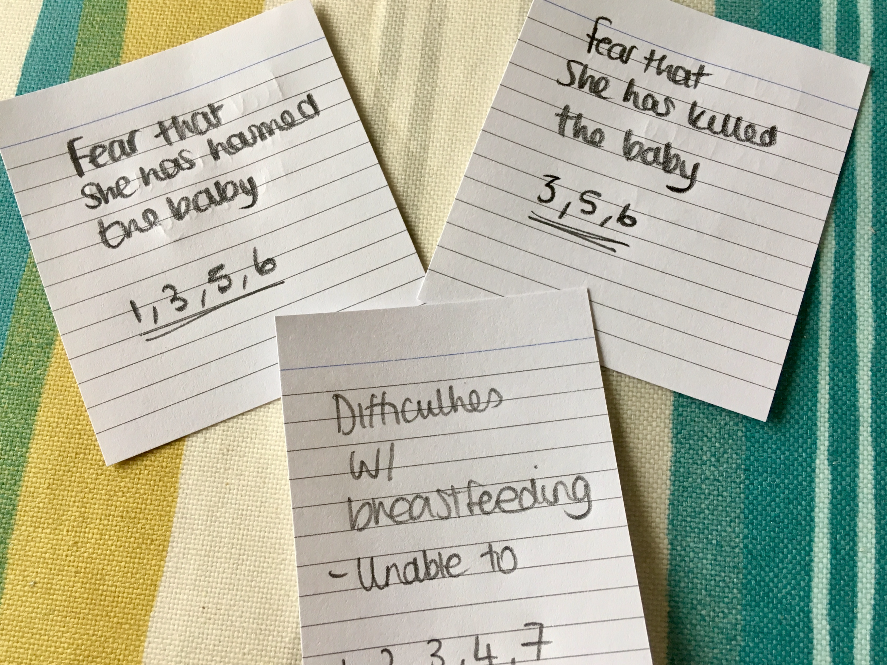 Fear that
she has harmed
the baby
1, 3, 5, 6
fear that
she has killed
the baby
3, 5, 6
Difficulties
w/
breastfeeding
- Unable to
1, 2, 3, 4, 7